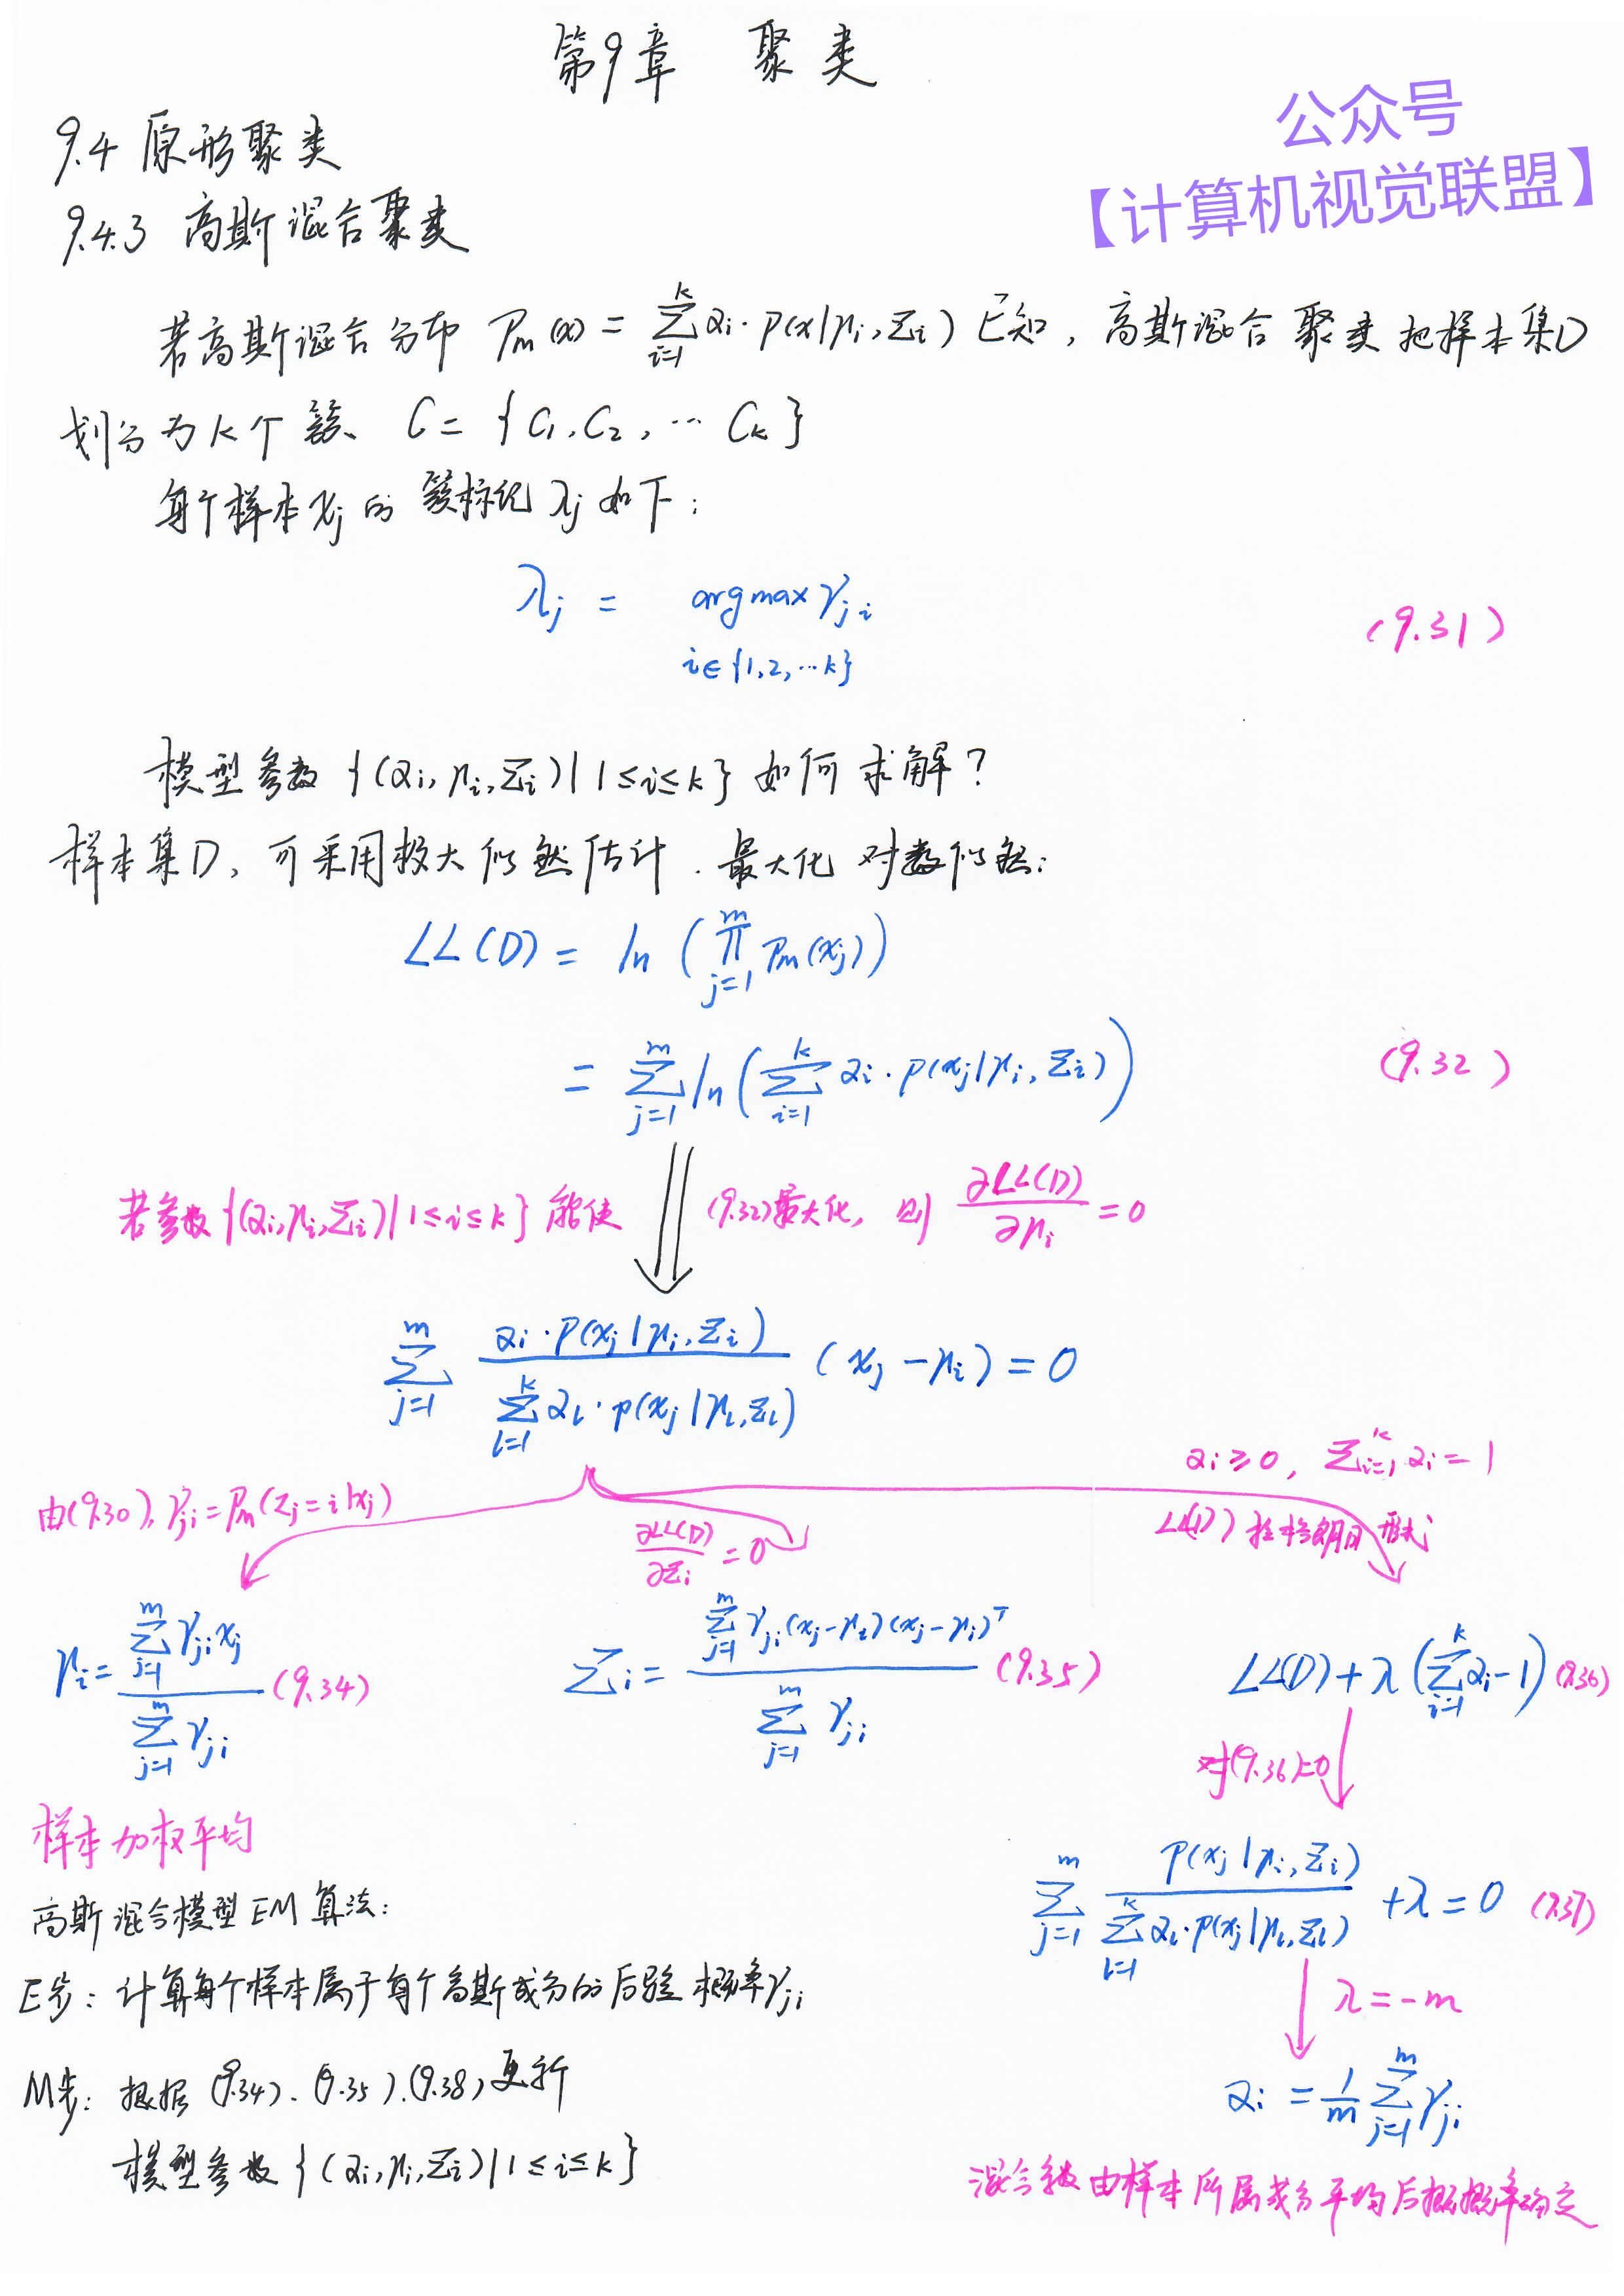 第9章 聚类
公众号
【计算机视觉联盟】
9.4 原形聚类
9.4.3 高斯混合聚类
若高斯混合分布 Pm(x) = ∑_{i=1}^{k} αi·P(x|μi,Σi) 已知, 高斯混合聚类把样本集D
划分为K个簇、 C = {C1,C2,…Ck}
每个样本xj的簇标记λj如下:
λj = argmax γji (9.31)
i∈{1,2,…k}
模型参数 {(αi,μi,Σi)|1≤i≤k} 如何求解?
样本集D, 可采用极大似然估计. 最大化对数似然:
LL(D) = ln (∏_{j=1}^{m} Pm(xj))
= ∑_{j=1}^{m} ln (∑_{i=1}^{k} αi·P(xj|μi,Σi)) (9.32)
若参数{(αi,μi,Σi)|1≤i≤k}能使 (9.32)最大化, 则 ∂LL(D)/∂μi = 0
∑_{j=1}^{m} αi·P(xj|μi,Σi) / ∑_{l=1}^{k} αl·P(xj|μl,Σl) (xj-μi) = 0
αi≥0, ∑_{i=1}^{k} αi = 1
由(9.30), γji = Pm(zj=i|xj)
∂LL(D)/∂Σi = 0
LL(D) 拉格朗日形式
μi = ∑_{j=1}^{m} γji xj / ∑_{j=1}^{m} γji (9.34)
Σi = ∑_{j=1}^{m} γji(xj-μi)(xj-μi)^T / ∑_{j=1}^{m} γji (9.35)
LL(D) + λ(∑_{i=1}^{k} αi-1) (9.36)
对(9.36)=0
样本加权平均
∑_{j=1}^{m} P(xj|μi,Σi) / ∑_{l=1}^{k} αl·P(xj|μl,Σl) + λ = 0 (9.37)
λ = -m
αi = 1/m ∑_{j=1}^{m} γji
混合系数由样本所属成分平均后概概率确定
高斯混合模型EM算法:
E步: 计算每个样本属于每个高斯成分的后验概率γji
M步: 根据(9.34).(9.35).(9.38)更新
模型参数{(αi,μi,Σi)|1≤i≤k}